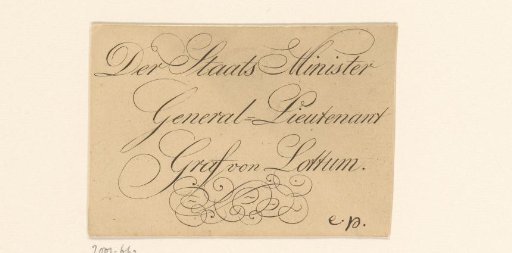 Der Staats Minister
General=Lieutenant
Graf von Lottum.
e.p.